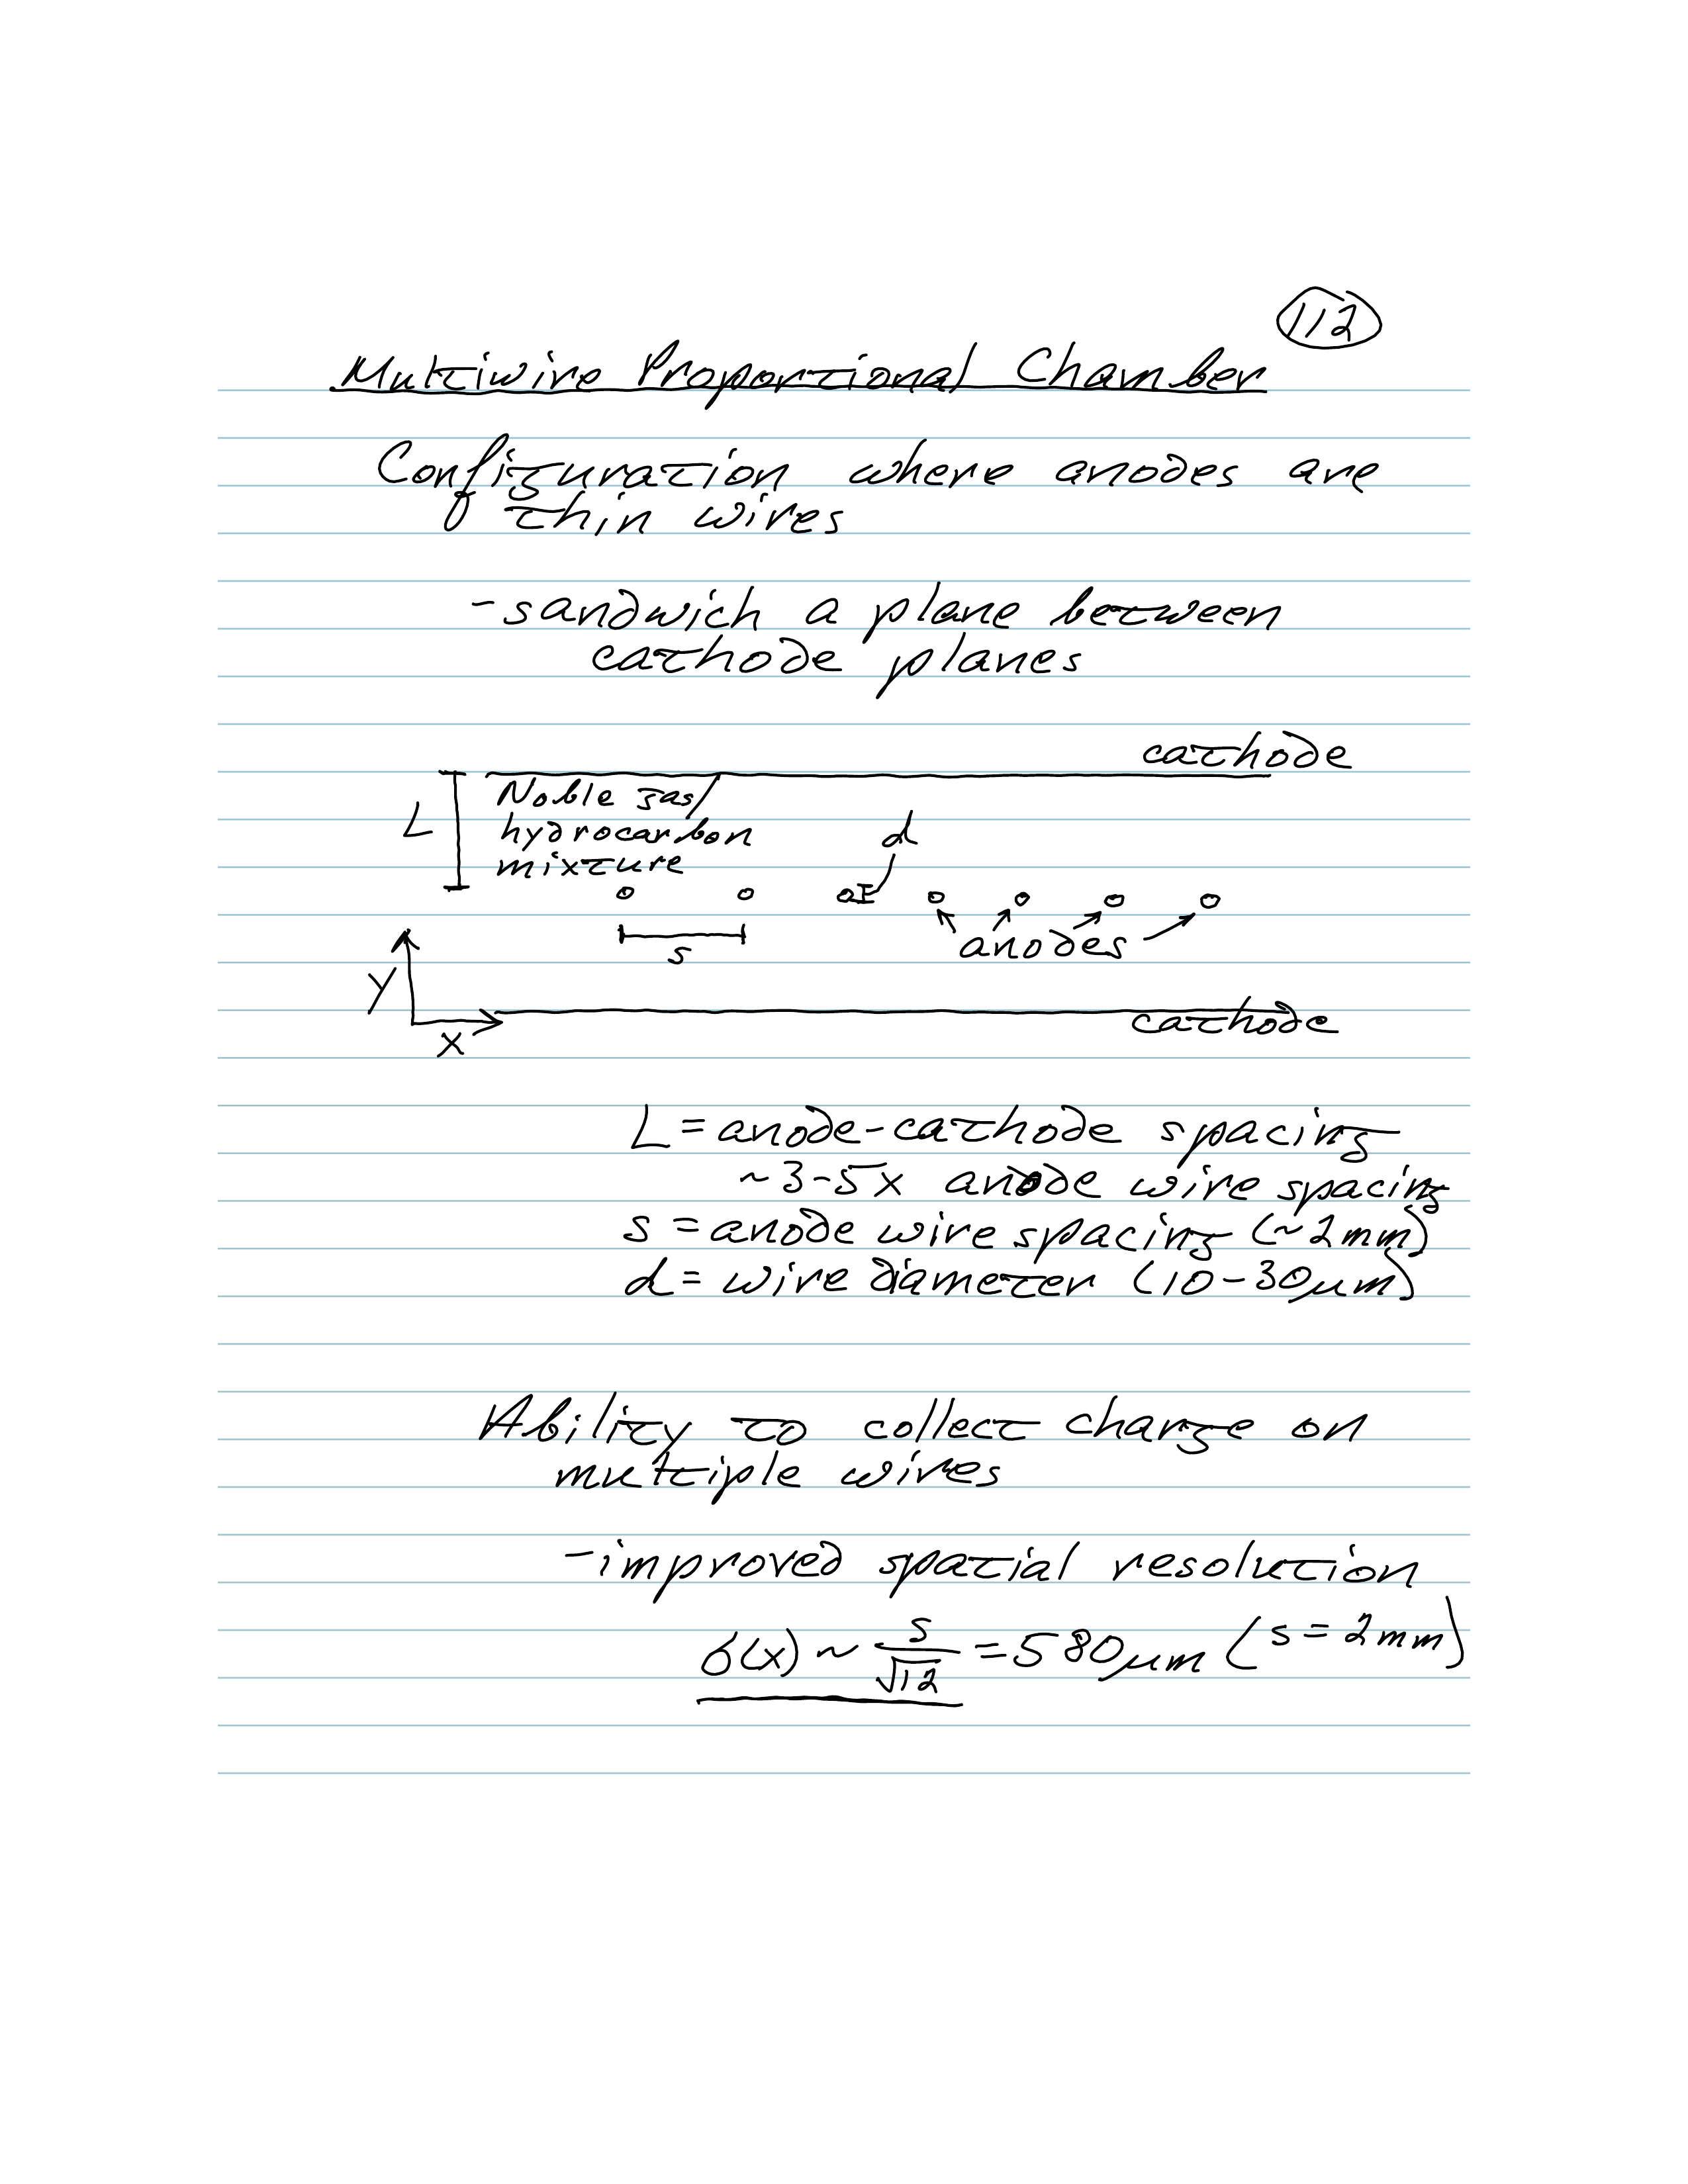 112
Multiwire Proportional Chamber
Configuration where anodes are
thin wires
-sandwich a plane between
cathode planes
cathode
Noble gas/
L
hydrocarbon
d
mixture
s
anodes
y
x
cathode
L = anode-cathode spacing
~3-5x anode wire spacing
s = anode wire spacing (~2mm)
d = wire diameter (10-30μm)
Ability to collect charge on
multiple wires
-improved spatial resolution
σ(x) ~ s/√12 = 580μm (s = 2mm)